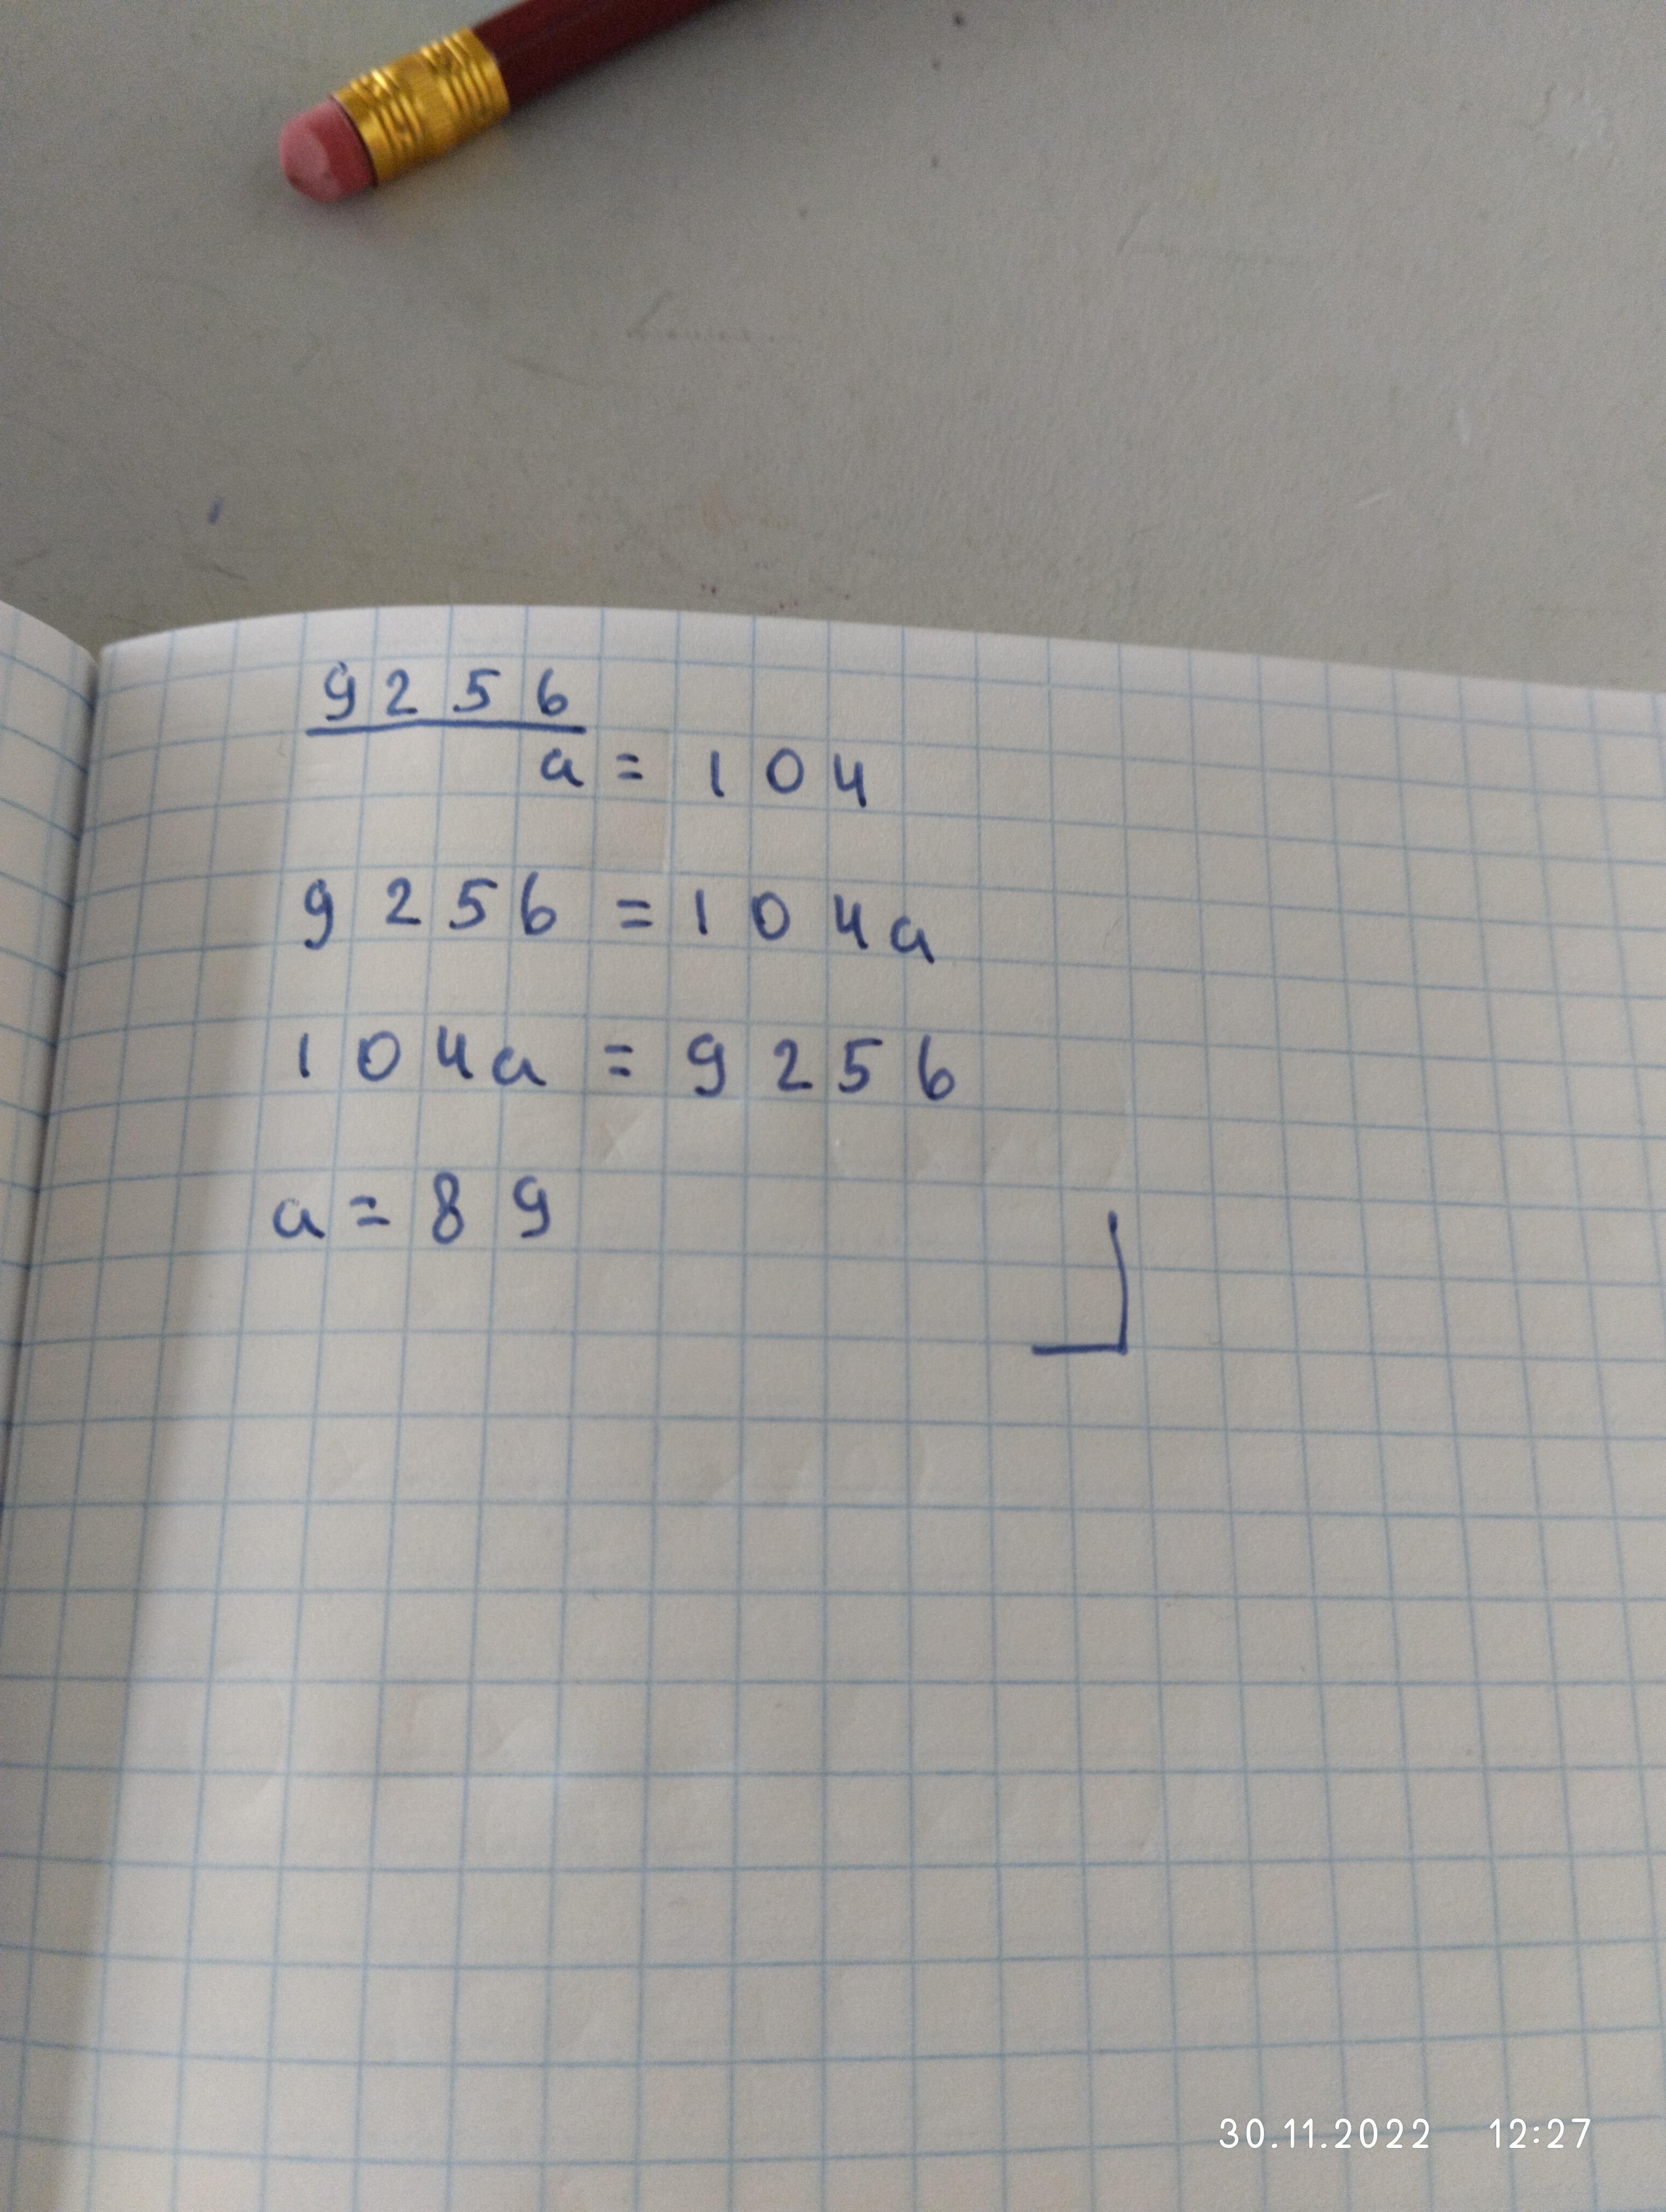 9256
a = 104
9256 = 104a
104a = 9256
a = 89
30.11.2022 12:27